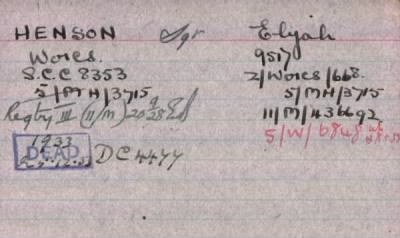 HENSON Sgr Elijah
Worcs. 9517
S.C.C 8353 2/Worcs/668.
5/MH/3715 5/MH/3715
Regtry III (11/M) 20 9/28 11/M/436692
5/W/6848
1933
DEAD DC 4477